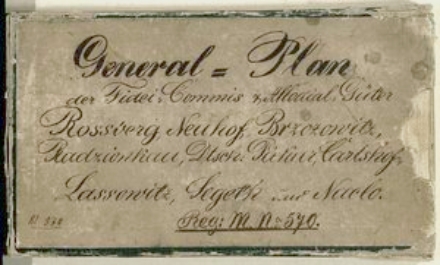 General = Plan
der Fidei-Commis & Allodial-Güter
Rossberg Neuhof, Brzozowitz,
Radzionkau, Dtsch. Piekar, Carlshof,
Lassowitz, Segeth und Naclo.
Reg: M. No 570.